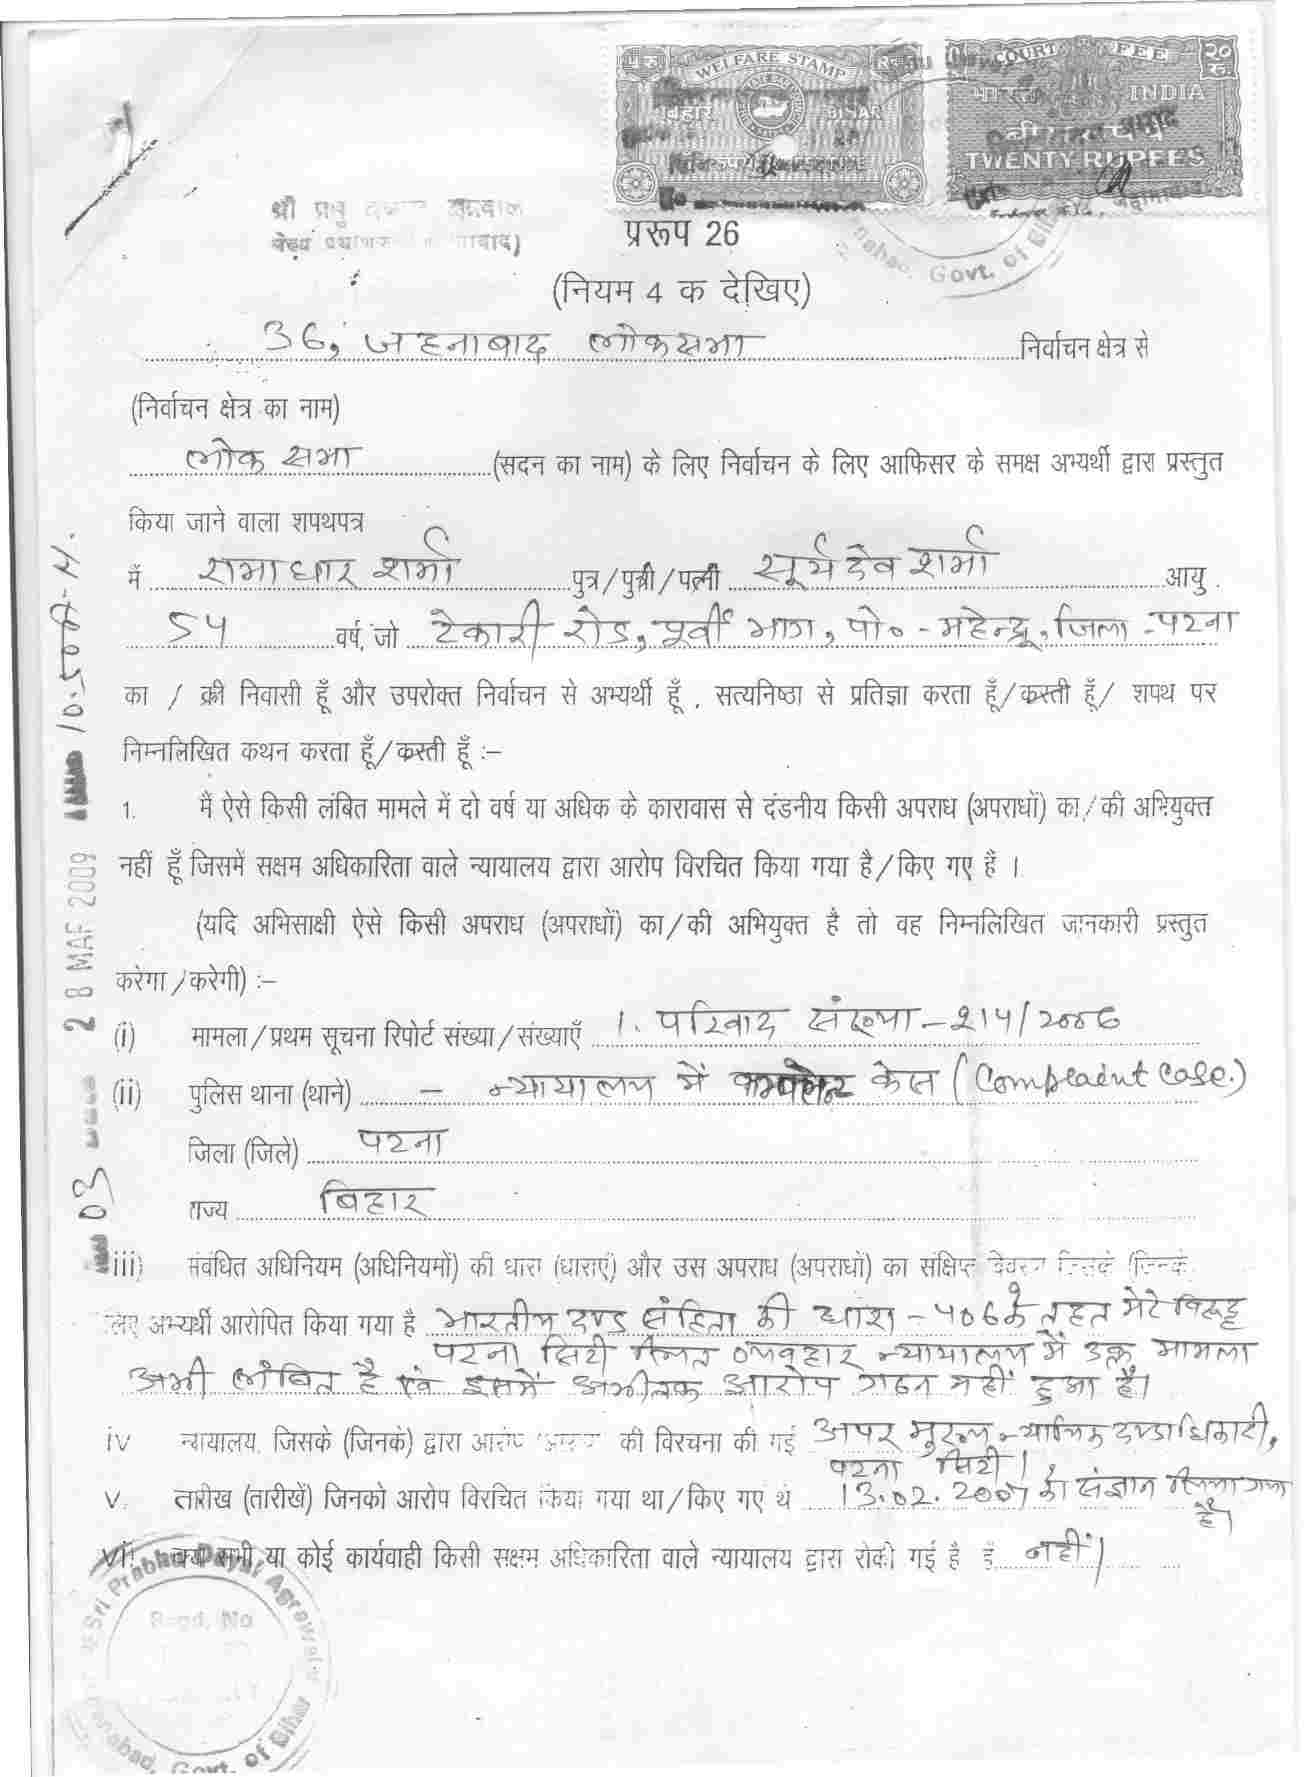 WELFARE STAMP
बिहार BIHAR
COURT FEE
२० रु.
भारत INDIA
TWENTY RUPEES
श्री प्रभु
प्ररूप 26
Govt. of Bihar
(नियम 4 क देखिए)
36, जहनाबाद लोकसभा निर्वाचन क्षेत्र से
(निर्वाचन क्षेत्र का नाम)
लोक सभा (सदन का नाम) के लिए निर्वाचन के लिए आफिसर के समक्ष अभ्यर्थी द्वारा प्रस्तुत
किया जाने वाला शपथपत्र
मैं रामाधार शर्मा पुत्र/पुत्री/पत्नी सूर्यदेव शर्मा आयु
54 वर्ष, जो टेकारी रोड, पूर्वी भाग, पो॰ - महेन्द्रू, जिला - पटना
का / की निवासी हूँ और उपरोक्त निर्वाचन से अभ्यर्थी हूँ , सत्यनिष्ठा से प्रतिज्ञा करता हूँ/करती हूँ/ शपथ पर
निम्नलिखित कथन करता हूँ/करती हूँ :–
1. मैं ऐसे किसी लंबित मामले में दो वर्ष या अधिक के कारावास से दंडनीय किसी अपराध (अपराधों) का/की अभियुक्त
नहीं हूँ जिसमें सक्षम अधिकारिता वाले न्यायालय द्वारा आरोप विरचित किया गया है/किए गए हैं ।
(यदि अभिसाक्षी ऐसे किसी अपराध (अपराधों) का/की अभियुक्त है तो वह निम्नलिखित जानकारी प्रस्तुत
करेगा/करेगी) :–
(i) मामला/प्रथम सूचना रिपोर्ट संख्या/संख्याएँ 1. परिवाद संख्या - 214/2006
(ii) पुलिस थाना (थाने) - न्यायालय में कम्पलेन्ट केस (Complaint Case.)
जिला (जिले) पटना
राज्य बिहार
iii) संबंधित अधिनियम (अधिनियमों) की धारा (धाराएं) और उस अपराध (अपराधों) का संक्षिप्त विवरण जिसके (जिनके
लिए अभ्यर्थी आरोपित किया गया है भारतीय दण्ड संहिता की धारा - 406 के तहत मेरे विरूद्ध
पटना सिटी स्थित व्यवहार न्यायालय में उक्त मामला
अभी लंबित है एवं इसमें अभीतक आरोप गठन नहीं हुआ है।
iv न्यायालय, जिसके (जिनके) द्वारा आरोप की विरचना की गई अपर मुख्य न्यायिक दण्डाधिकारी,
पटना सिटी।
v. तारीख (तारीखें) जिनको आरोप विरचित किया गया था/किए गए थे 13.02.2007 को संज्ञान लिया गया
है।
vi. क्या सभी या कोई कार्यवाही किसी सक्षम अधिकारिता वाले न्यायालय द्वारा रोकी गई है नहीं।
28 MAR 2009
03
Sri Prabhu Dayal Agrawal
Regd. No
Govt. of Bihar